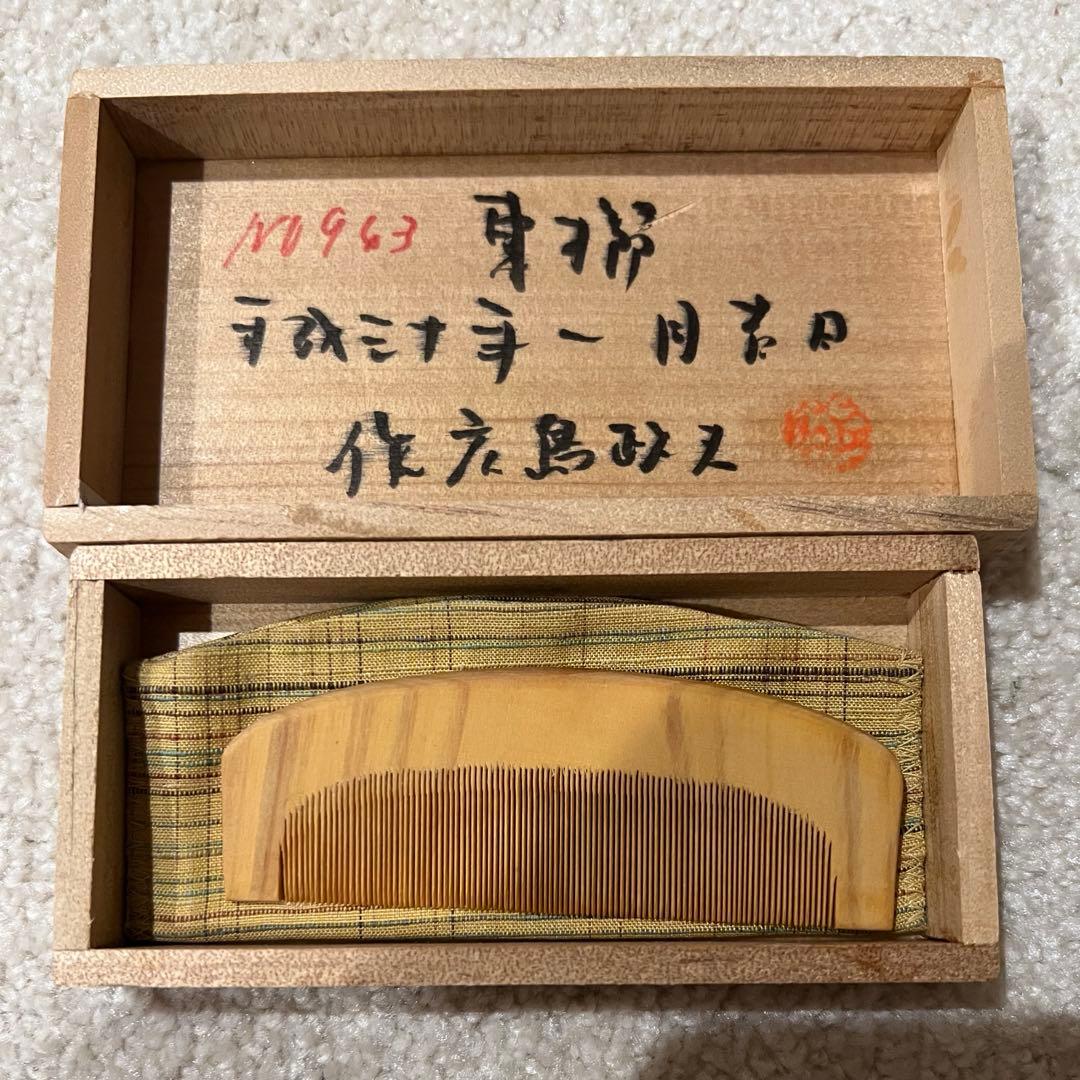 NO963 東揶
平成三十年一月吉日
作広島政文